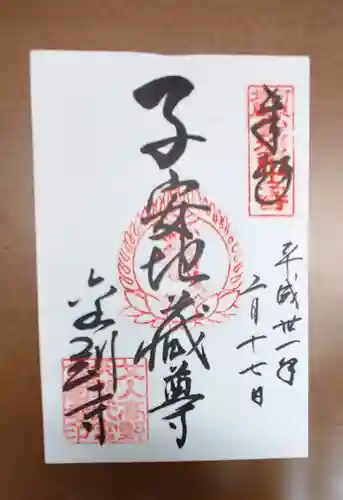 奉拝
平成卅一年
二月十七日
子安地蔵尊
金剛寺